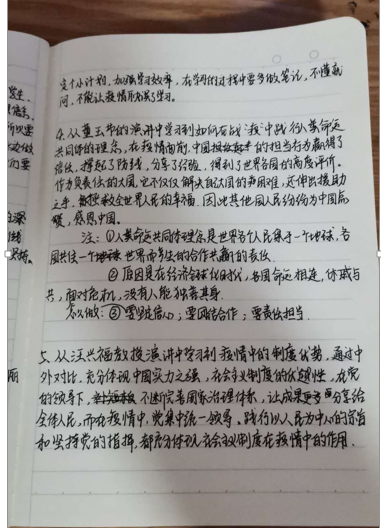 定个小计划，加强学习效率，在学习的过程中要多做笔记，不懂就
问，不能让疫情耽误了学习。
4.从董玉节的演讲中学习到如何在战"疫"中践行人类命运
共同体的理念，在疫情面前，中国的担当行为赢得了
信任，撑起了防线，分享了经验，得到了世界各国的高度评价。
作为负责任的大国，它不仅仅解决自己国的种困难，还伸出援助
之手，拯救全世界人民的幸福，因此其他国人民纷纷为中国点
暖，感恩中国。
注：①人类命运共同体理念是世界各个人民集于一个地球，各
国共住一个世界而寻求的合作共赢的表状
②原因是在经济全球化时代，各国命运相连，休戚与
共，面对危机，没有人能独善其身
怎么做：③要坚定信心；要团结合作；要责任担当
5.从汪兴福教授演讲中学习到疫情中的制度优势，通过中
外对比，充分体现中国实力之强，社会主义制度的优越性，在党
的领导下，不断完善国家治理体系，让成果更多分享给
全体人民，而在疫情中，党集中统一领导，践行以人民为中心的宗旨
和坚持党的指挥，都充分体现社会主义制度在疫情中的作用.
发生，
所以要
力做
们要
在深